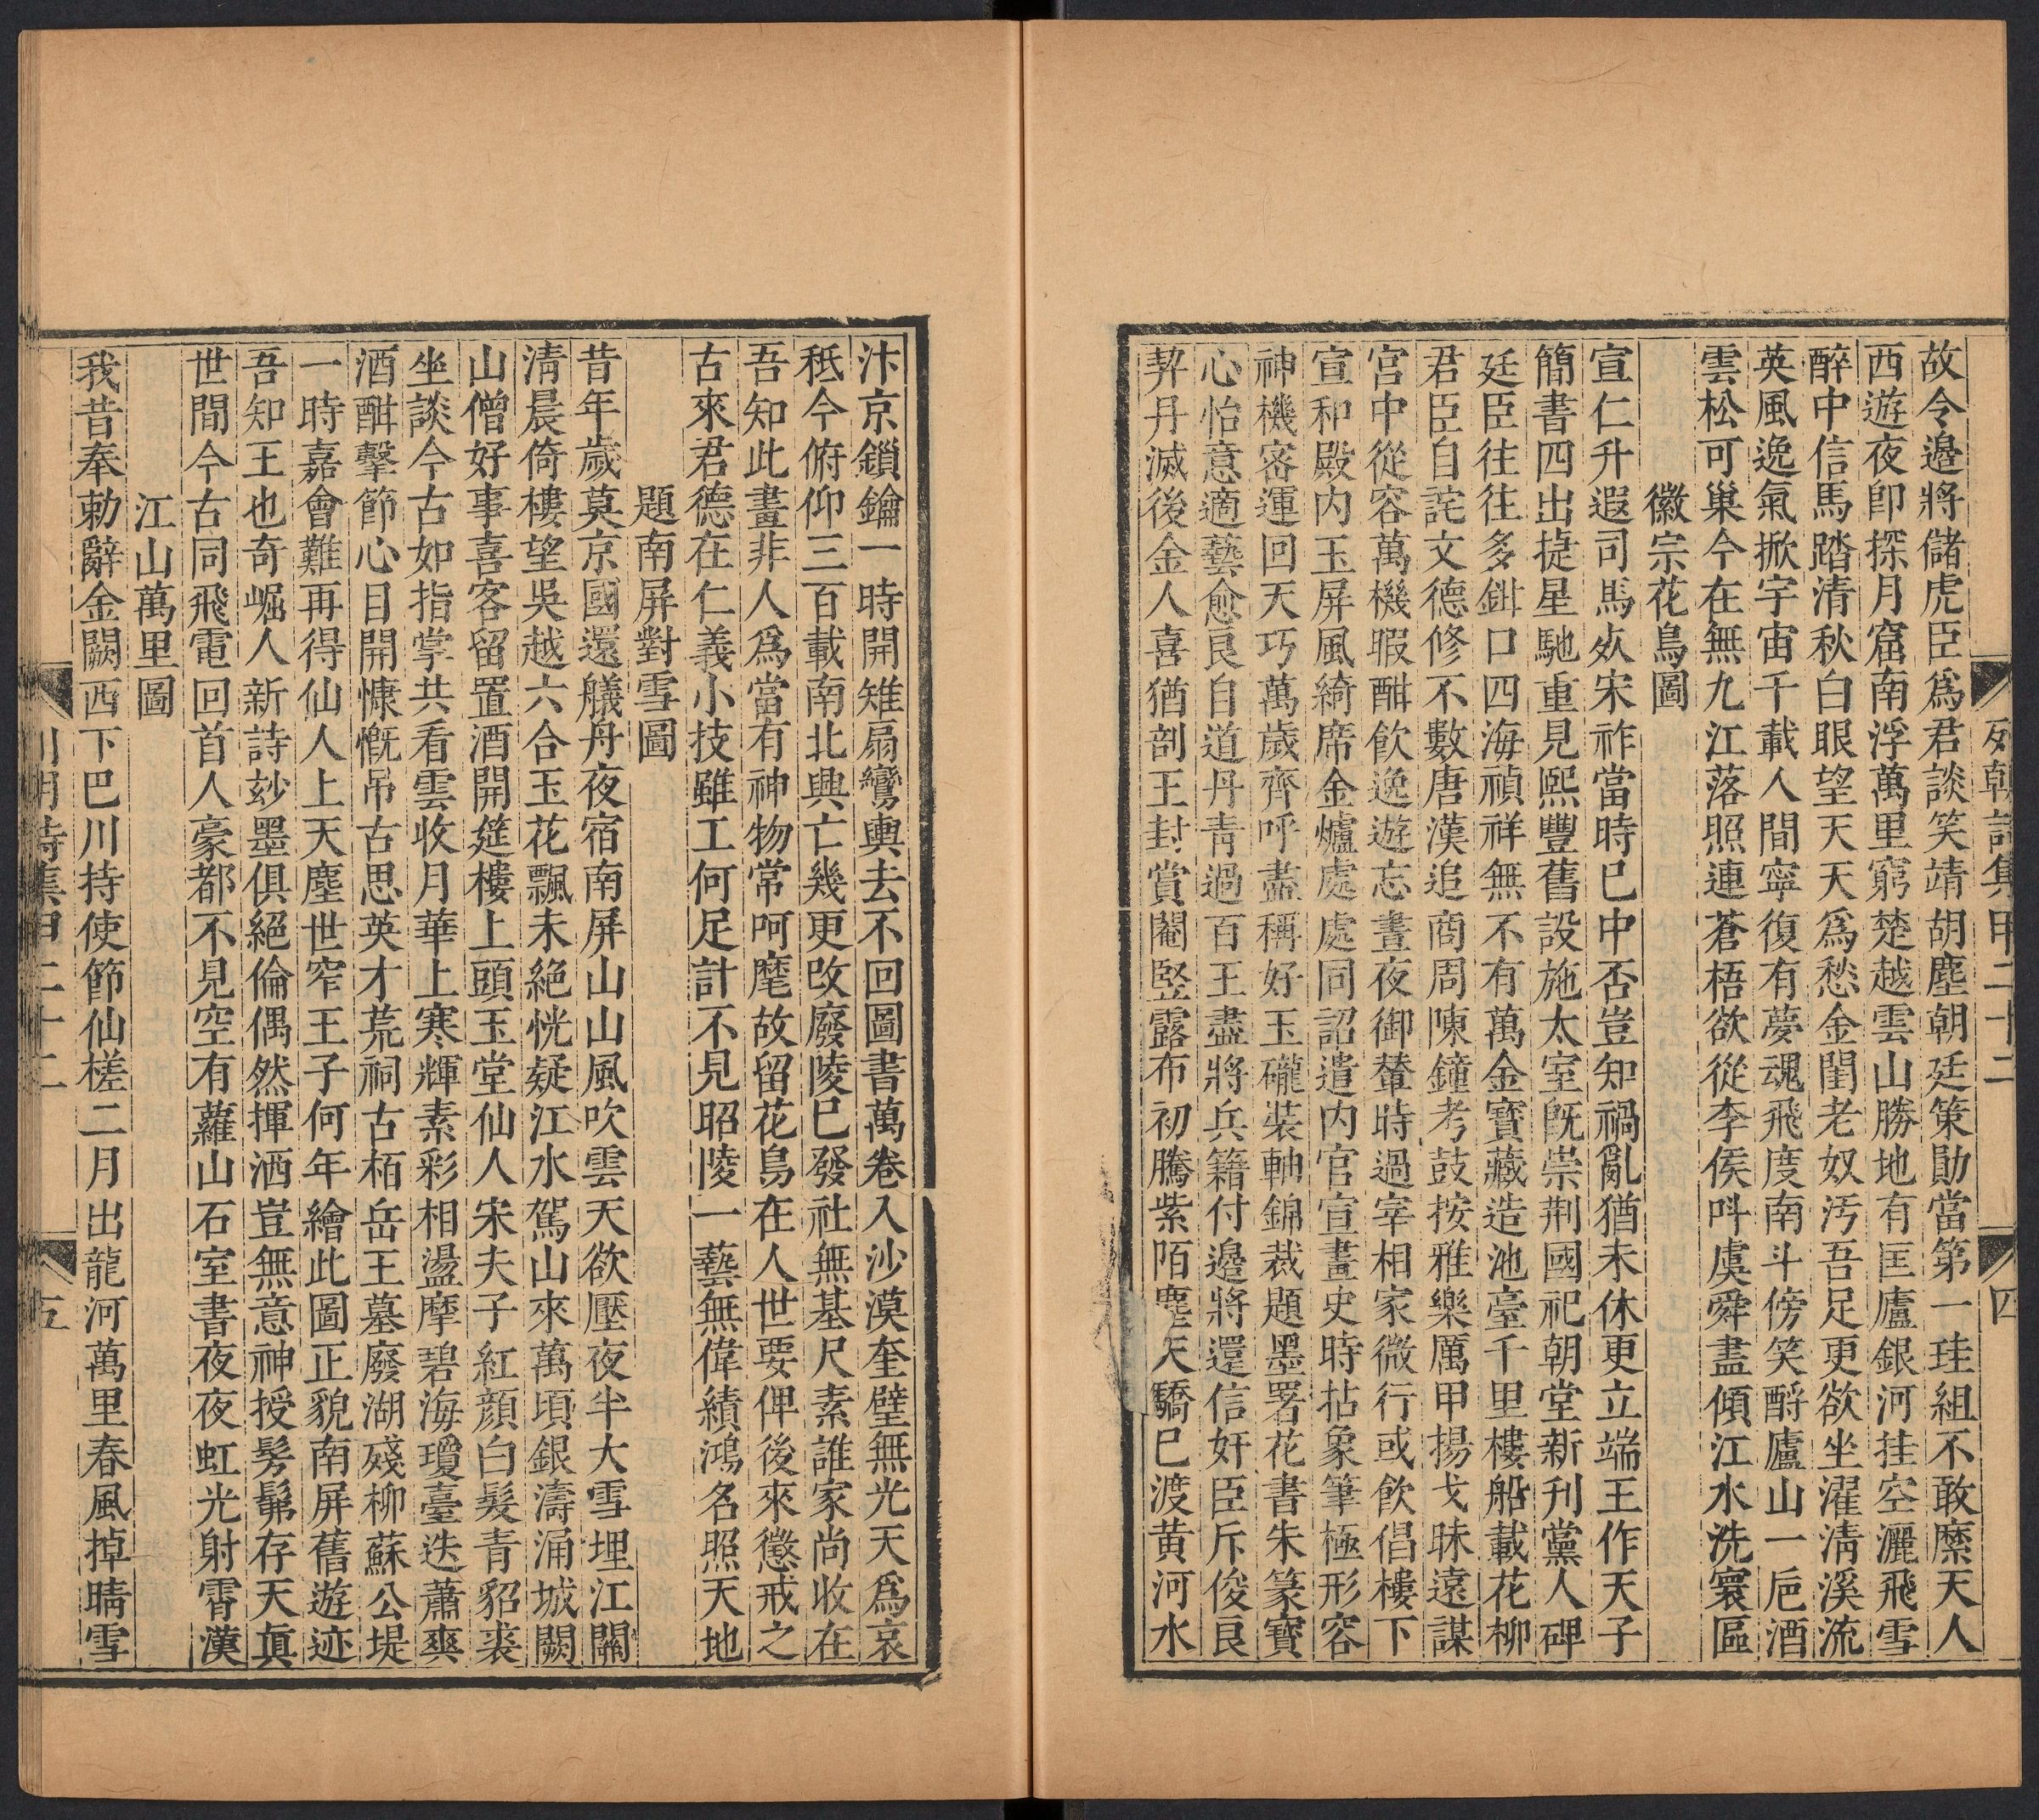 列朝詩集甲二十二
四
故令邊將儲虎臣爲君談笑靖胡塵朝廷策勛當第一珪組不敢縻天人
西遊夜卽探月窟南浮萬里窮楚越雲山勝地有匡廬銀河挂空灑飛雪
醉中信馬踏清秋白眼望天天爲愁金閨老奴汚吾足更欲坐濯淸溪流
英風逸氣掀宇宙千載人間寧復有夢魂飛度南斗傍笑酹廬山一巵酒
雲松可巢今在無九江落照連蒼梧欲從李侯呌虞舜盡傾江水洗寰區
徽宗花鳥圖
宣仁升遐司馬死宋祚當時已中否豈知禍亂猶未休更立端王作天子
簡書四出捷星馳重見熙豐舊設施太室旣崇荆國祀朝堂新刋黨人碑
廷臣往往多鉗口四海禎祥無不有萬金寶藏造池臺千里樓船載花柳
君臣自詫文德修不數唐漢追商周陳鐘考鼓按雅樂厲甲揚戈昧遠謀
宮中從容萬機暇酣飮逸遊忘晝夜御輦時過宰相家微行或飮倡樓下
宣和殿内玉屏風綺席金爐處處同詔遣内官宣畫史時拈象筆極形容
神機密運回天巧萬歲齊呼盡稱好玉礲裝軸錦裁題墨署花書朱篆寶
心怡意適藝愈良自道丹靑過百王盡將兵籍付邊將還信奸臣斥俊良
契丹滅後金人喜猶剖王封賞閹竪露布初騰紫陌塵天驕已渡黃河水
汴京鎖鑰一時開雉扇鸞輿去不回圖書萬卷入沙漠奎璧無光天爲哀
秪今俯仰三百載南北興亡幾更改廢陵已發社無基尺素誰家尚收在
吾知此畫非人爲當有神物常呵麾故留花鳥在人世要俾後來懲戒之
古來君德在仁義小技雖工何足計不見昭陵一藝無偉績鴻名照天地
題南屏對雪圖
昔年歲莫京國還艤舟夜宿南屏山山風吹雲天欲壓夜半大雪埋江關
淸晨倚樓望吳越六合玉花飄未絕恍疑江水駕山來萬頃銀濤涌城闕
山僧好事喜客留置酒開筵樓上頭玉堂仙人宋夫子紅顏白髮靑貂裘
坐談今古如指掌共看雲收月華上寒輝素彩相盪摩碧海瓊臺迭蕭爽
酒酣擊節心目開慷慨吊古思英才荒祠古栢岳王墓廢湖殘柳蘇公堤
一時嘉會難再得仙人上天塵世窄王子何年繪此圖正貌南屏舊遊迹
吾知王也奇崛人新詩玅墨俱絕倫偶然揮洒豈無意神授髣髴存天眞
世間今古同飛電回首人豪都不見空有蘿山石室書夜夜虹光射霄漢
江山萬里圖
我昔奉勅辭金闕西下巴川持使節仙槎二月出龍河萬里春風掉晴雪
列朝詩集甲二十二
五